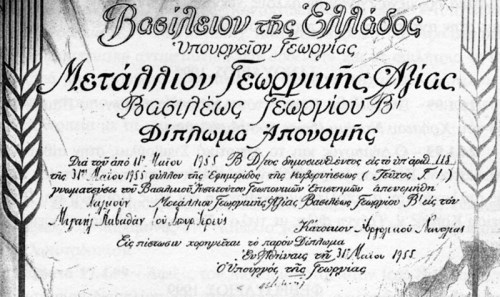 Βασίλειον της Ελλάδος
Υπουργείον Γεωργίας
Μετάλλιον Γεωργικής Αξίας
Βασιλέως Γεωργίου Β'
Δίπλωμα Απονομής
Δια του από 11ης Μαΐου 1955 Β. Δ/τος δημοσιευθέντος εις το υπ' αριθ. 113
της 31ης Μαΐου 1955 φύλλον της Εφημερίδος της Κυβερνήσεως (Τεύχος
γνωματεύσει του Βασιλικού Ινστιτούτου Γεωπονικών Επιστημών απενεμήθη
Χαλκούν Μετάλλιον Γεωργικής Αξίας Βασιλέως Γεωργίου Β' εις τον
Μιχαήλ του Κάτοικον Αργολικού Ναυπλίας
Εις πίστωσιν χορηγείται το παρόν Δίπλωμα
Εν Αθήναις τη 31η Μαΐου 1955
Ο Υπουργός της Γεωργίας